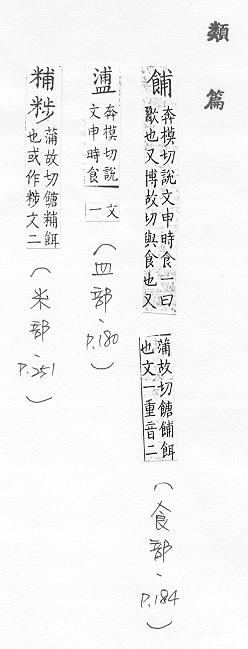 類篇
餔 奔模切說文申時食一曰
歠也又博故切與食也又
蒲故切餹餔餌
也文一重音二
(食部、P.184)
𥂈 奔模切說
文申時食
文一
(皿部、P.180)
䊇 𥹴 蒲故切餹䊇餌
也或作𥹴文二
(米部、P.251)